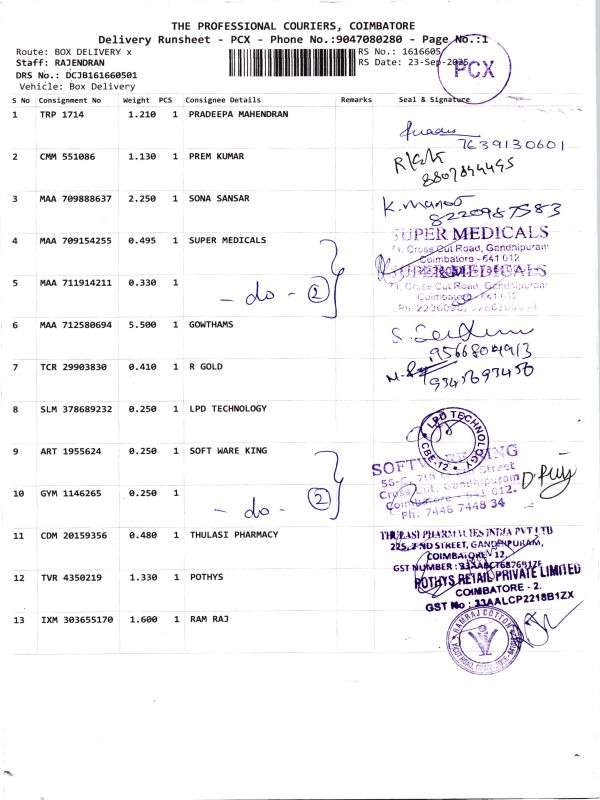 THE PROFESSIONAL COURIERS, COIMBATORE
Delivery Runsheet - PCX - Phone No.:9047080280 - Page No.:1
Route: BOX DELIVERY x
RS No.: 1616605
Staff: RAJENDRAN
RS Date: 23-Sep-2025
PCX
DRS No.: DCJB161660501
Vehicle: Box Delivery
S No Consignment No Weight PCS Consignee Details Remarks Seal & Signature
1 TRP 1714 1.210 1 PRADEEPA MAHENDRAN
7639130601
2 CMM 551086 1.130 1 PREM KUMAR
8807894495
3 MAA 709888637 2.250 1 SONA SANSAR
K. Manoj
8220987583
4 MAA 709154255 0.495 1 SUPER MEDICALS
SUPER MEDICALS
71, Cross Cut Road, Gandhipuram
Coimbatore - 641 012
5 MAA 711914211 0.330 1
- do - 2
SUPER MEDICALS
71, Cross Cut Road, Gandhipuram
Coimbatore - 641 012
6 MAA 712580694 5.500 1 GOWTHAMS
9566804913
7 TCR 29903830 0.410 1 R GOLD
9345693456
8 SLM 378689232 0.250 1 LPD TECHNOLOGY
LPD TECHNOLOGY
CBE-12
9 ART 1955624 0.250 1 SOFT WARE KING
SOFTWARE KING
56-C, 7th Street
Cross Cut, Gandhipuram
10 GYM 1146265 0.250 1
- do - 2
Coimbatore - 641 012.
Ph: 7448 7448 34
11 CDM 20159356 0.480 1 THULASI PHARMACY
THULASI PHARMACIES INDIA PVT LTD
225, 2 ND STREET, GANDHIPURAM,
COIMBATORE - 12.
GST NUMBER :
12 TVR 4350219 1.330 1 POTHYS
POTHYS RETAIL PRIVATE LIMITED
COIMBATORE - 2.
GST No : 33AALCP2218B1ZX
13 IXM 303655170 1.600 1 RAM RAJ
RAMRAJ COTTON